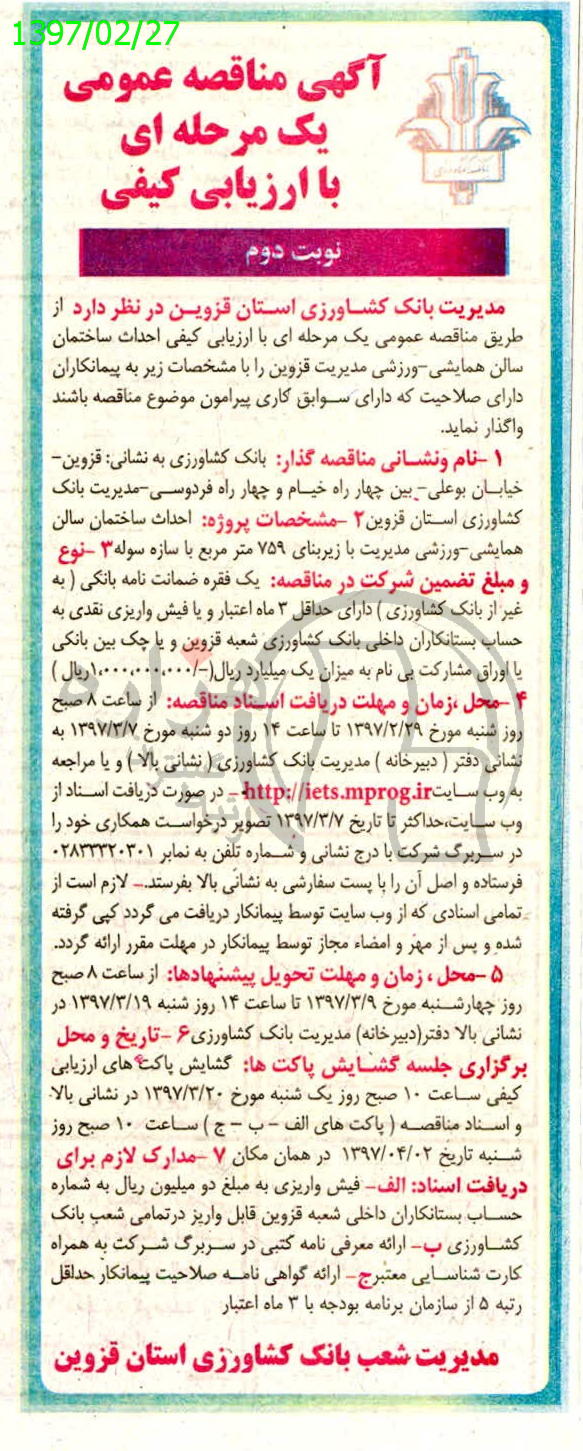 1397/02/27
آگهی مناقصه عمومی
یک مرحله ای
با ارزیابی کیفی
بانک کشاورزی
نوبت دوم
مدیریت بانک کشـاورزی اسـتان قزویـن در نظر دارد از
طریق مناقصه عمومی یک مرحله ای با ارزیابی کیفی احداث ساختمان
سالن همایشی-ورزشی مدیریت قزوین را با مشخصات زیر به پیمانکاران
دارای صلاحیت که دارای سـوابق کاری پیرامون موضوع مناقصه باشند
واگذار نماید.
۱ -نام ونشـانی مناقصه گذار: بانک کشاورزی به نشانی: قزوین-
خیابـان بوعلی- بین چهار راه خیـام و چهار راه فردوسـی-مدیریت بانک
کشاورزی اسـتان قزوین۲ -مشخصات پروژه: احداث ساختمان سالن
همایشی-ورزشی مدیریت با زیربنای ۷۵۹ متر مربع با سازه سوله۳ -نوع
و مبلغ تضمین شرکت در مناقصه: یک فقره ضمانت نامه بانکی ( به
غیر از بانک کشاورزی ) دارای حداقل ۳ ماه اعتبار و یا فیش واریزی نقدی به
حساب بستانکاران داخلی بانک کشاورزی شعبه قزوین و یا چک بین بانکی
یا اوراق مشارکت بی نام به میزان یک میلیارد ریال(-/۱،۰۰۰،۰۰۰،۰۰۰ریال )
۴ -محل ،زمان و مهلت دریافت اسـناد مناقصه: از ساعت ۸ صبح
روز شنبه مورخ ۱۳۹۷/۲/۲۹ تا ساعت ۱۴ روز دو شنبه مورخ ۱۳۹۷/۳/۷ به
نشانی دفتر ( دبیرخانه ) مدیریت بانک کشاورزی ( نشانی بالا ) و یا مراجعه
به وب سـایتhttp://iets.mprog.ir- در صورت دریافت اسـناد از
وب سـایت،حداکثر تا تاریخ ۱۳۹۷/۳/۷ تصویر درخواسـت همکاری خود را
در سـربرگ شرکت با درج نشانی و شـماره تلفن به نمابر ۰۲۸۳۳۳۲۰۳۰۱
فرستاده و اصل آن را با پست سفارشی به نشانی بالا بفرستد.- لازم است از
تمامی اسنادی که از وب سایت توسط پیمانکار دریافت می گردد کپی گرفته
شده و پس از مهر و امضاء مجاز توسط پیمانکار در مهلت مقرر ارائه گردد.
۵ -محل ، زمان و مهلت تحویل پیشنهادها: از ساعت ۸ صبح
روز چهارشـنبه مورخ ۱۳۹۷/۳/۹ تا ساعت ۱۴ روز شنبه ۱۳۹۷/۳/۱۹ در
نشانی بالا دفتر(دبیرخانه) مدیریت بانک کشاورزی۶ -تاریخ و محل
برگزاری جلسه گشـایش پاکت ها: گشایش پاکت های ارزیابی
کیفی سـاعت ۱۰ صبح روز یک شنبه مورخ ۱۳۹۷/۳/۲۰ در نشانی بالا
و اسـناد مناقصـه ( پاکت های الف - ب - ج ) سـاعت ۱۰ صبح روز
شـنبه تاریخ ۱۳۹۷/۰۴/۰۲ در همان مکان ۷ -مدارک لازم برای
دریافت اسناد: الف- فیش واریزی به مبلغ دو میلیون ریال به شماره
حسـاب بستانکاران داخلی شعبه قزوین قابل واریز درتمامی شعب بانک
کشـاورزی ب- ارائه معرفی نامه کتبی در سـربرگ شـرکت به همراه
کارت شناسـایی معتبرج- ارائه گواهی نامـه صلاحیت پیمانکار حداقل
رتبه ۵ از سازمان برنامه بودجه با ۳ ماه اعتبار
مدیریت شعب بانک کشاورزی استان قزوین